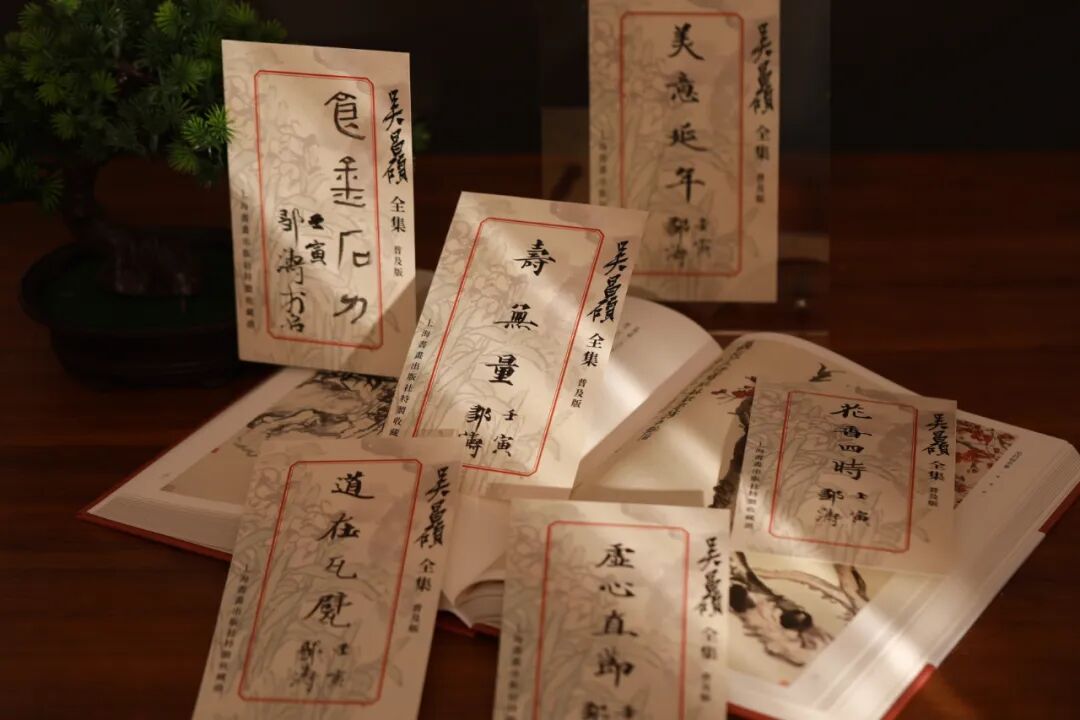 吳昌碩全集 普及版
食金石力
壬寅
鄒濤
上海書畫出版社特製收藏
吳昌碩全集 普及版
美意延年
壬寅
鄒濤
上海書畫出版社特製收藏
吳昌碩全集 普及版
壽無量
壬寅
鄒濤
上海書畫出版社特製收藏
吳昌碩全集 普及版
花香四時
壬寅
鄒濤
上海書畫出版社特製收藏
吳昌碩全集 普及版
道在瓦甓
壬寅
鄒濤
上海書畫出版社特製收藏
吳昌碩全集 普及
虛心直節
壬
鄒
上海書畫出版社特製